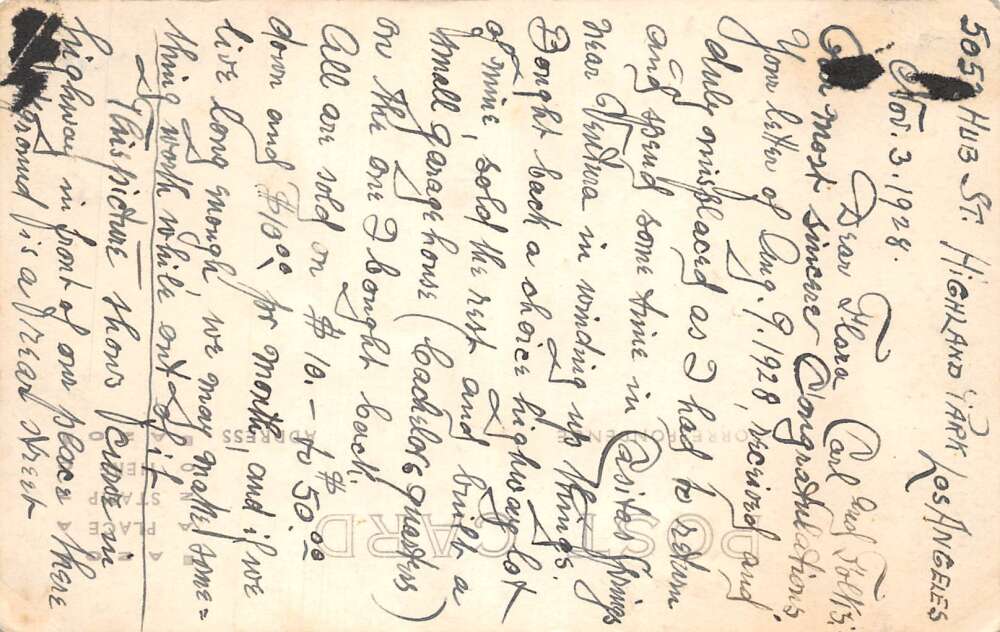 5059 HUB ST. HIGHLAND PARK LOS ANGELES
Nov. 3. 1928.
Dear Flora Carl and Folks:
Our most sincere Congratulations.
Your letter of Aug. 9. 1928, received and
duly misplaced as I had to return
and spend some time in Casitas Springs
near Ventura in winding up things.
Bought back a choice highway lot
of mine, sold the rest and built a
small garage house (bachelors quarters)
on the one I bought back.
All are sold on $10.— to $50.00
down and $10.00 for month, and if we
live long enough, we may make some=
thing worth while out of it.
This picture shows fence in
highway in front of our place there
ground is a real street
POST CARD
CORRESPONDENCE
ADDRESS
PLACE
STAMP